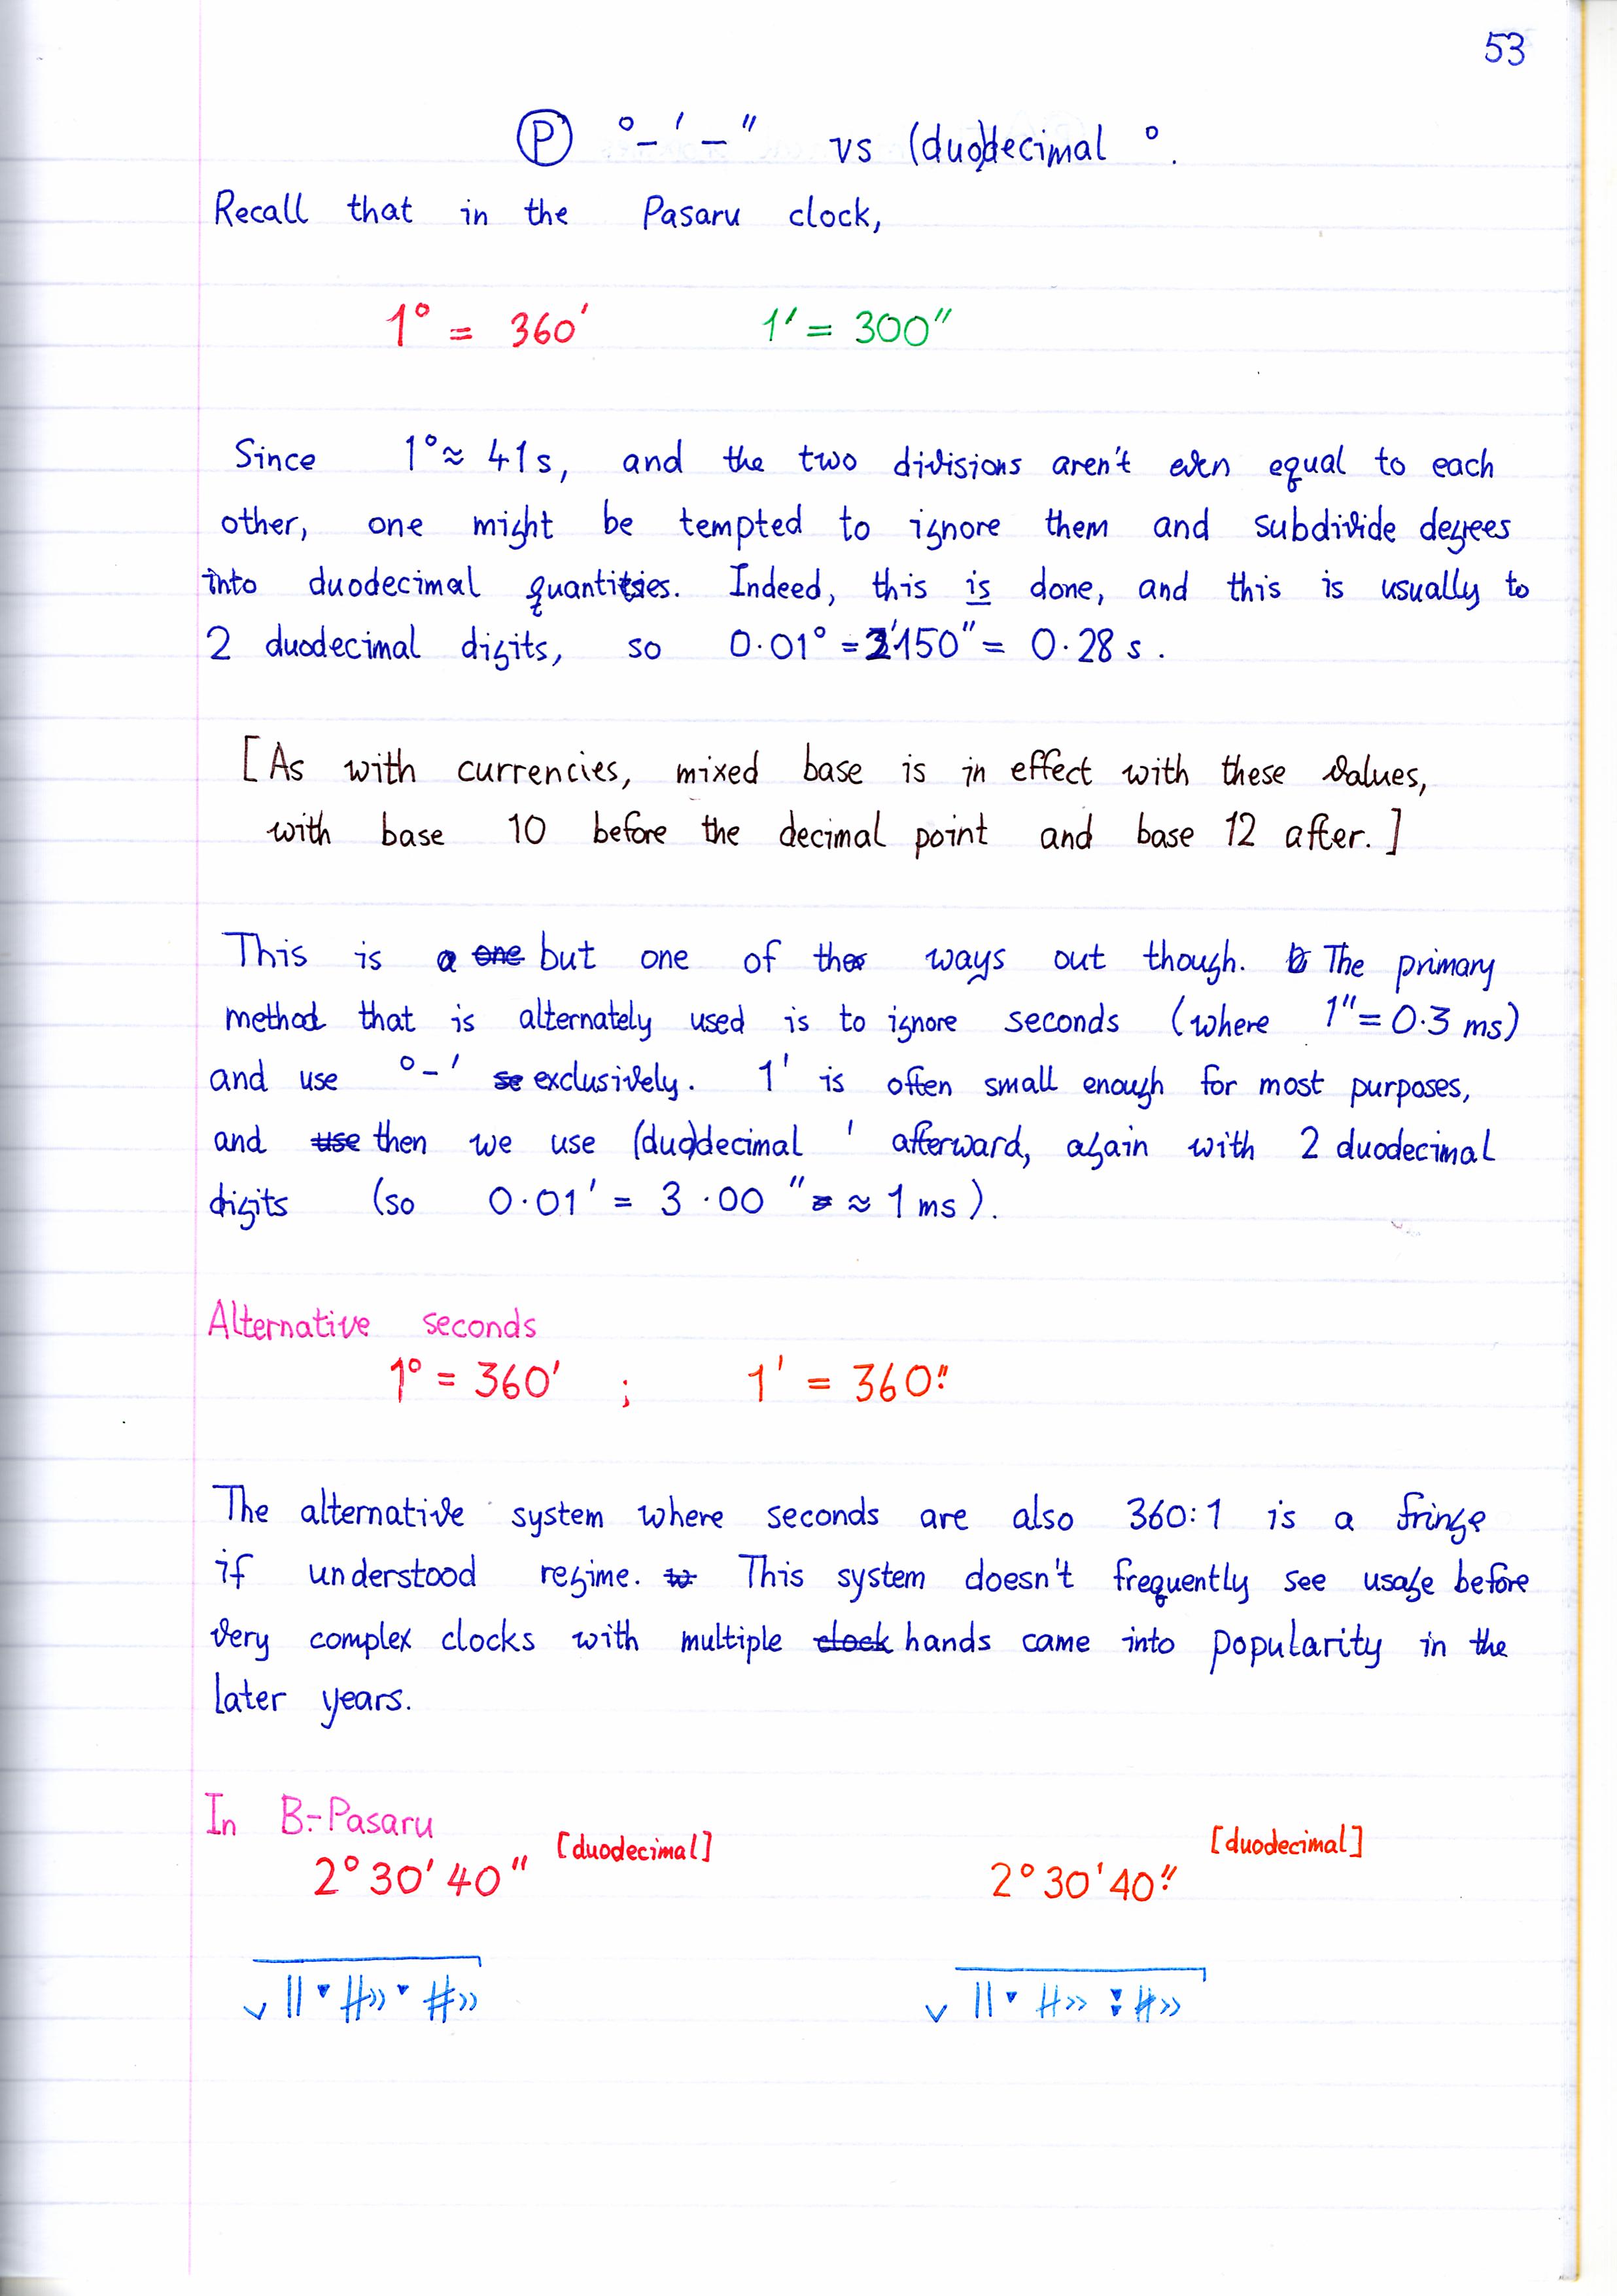 53
Ⓟ °–′–″ vs (duo)decimal °.
Recall that in the Pasaru clock,
1° = 360′ 1′ = 300″
Since 1° ≈ 41s, and the two divisions aren't even equal to each
other, one might be tempted to ignore them and subdivide degrees
into duodecimal quantities. Indeed, this is done, and this is usually to
2 duodecimal digits, so 0.01° = 2′150″ = 0.28 s.
[As with currencies, mixed base is in effect with these values,
with base 10 before the decimal point and base 12 after.]
This is a one but one of the ways out though. The primary
method that is alternately used is to ignore seconds (where 1″ = 0.3 ms)
and use °–′ se exclusively. 1′ is often small enough for most purposes,
and use then we use (duo)decimal ′ afterward, again with 2 duodecimal
digits (so 0.01′ = 3.00″ ≈ 1 ms).
Alternative seconds
1° = 360′ ; 1′ = 360!!
The alternative system where seconds are also 360:1 is a fringe
if understood regime. This system doesn't frequently see usage before
very complex clocks with multiple clock hands came into popularity in the
later years.
In B:-Pasaru
2°30′40″ [duodecimal] 2°30′40!! [duodecimal]